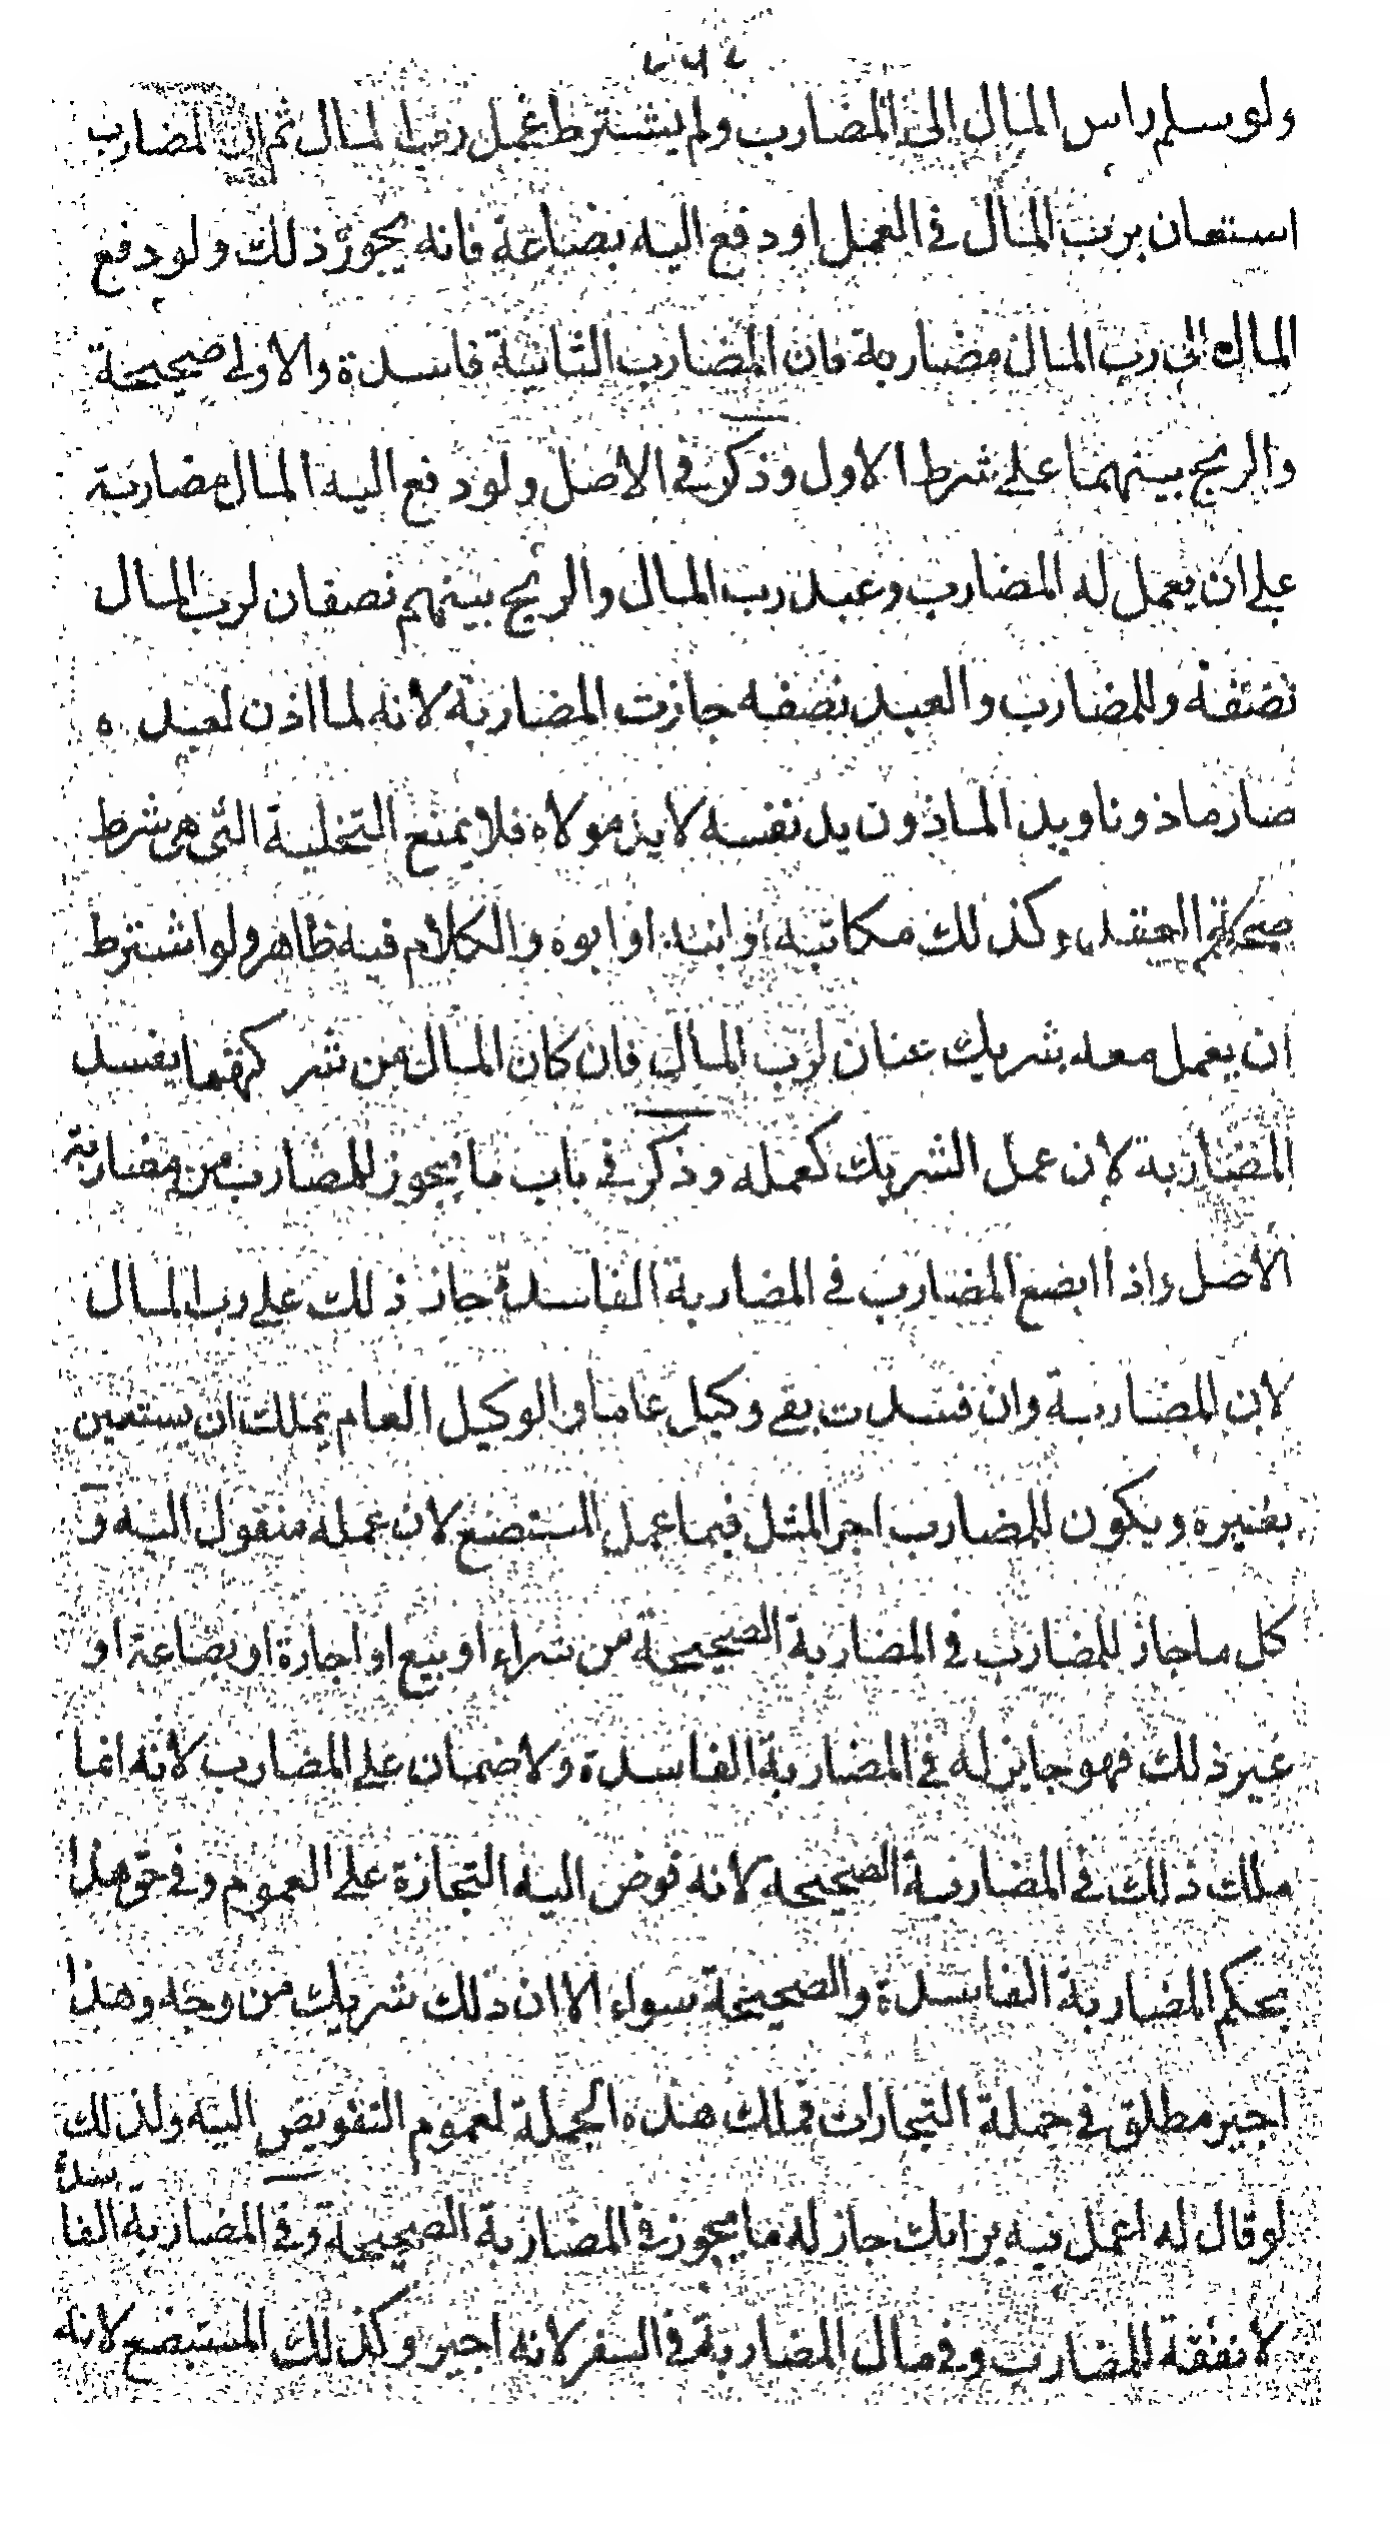 ولو سلم راس المال الى المضارب ولم يشترط عمل رب المال ثم ان المضارب
استعان برب المال في العمل او دفع اليه بضاعة فانه يجوز ذلك ولو دفع
المال الى رب المال مضاربة فان المضارب الثانية فاسدة والاولى صحيحة
والربح بينهما على شرط الاول وذكر في الاصل ولو دفع اليه المال مضاربة
على ان يعمل له المضارب وعبد رب المال والربح بينهم نصفان لرب المال
نصفه وللمضارب والعبد نصفه جازت المضاربة لانه لما اذن لعبده
صار ماذونا ويد الماذون يد نفسه لا يد مولاه فلا يمنع التخلية التي هي شرط
العقد وكذلك مكاتبه وابنه او ابوه والكلام فيه ظاهر ولو اشترط
ان يعمل معه شريك عنان لرب المال فان كان المال من شركتهما يفسد
المضاربة لان عمل الشريك كعمله وذكر في باب ما يجوز للمضارب من مضاربة
الاصل واذا ابضع المضارب في المضاربة الفاسدة جاز ذلك على رب المال
لان المضاربة وان فسدت بقى وكيل عاما والوكيل العام يملك ان يستعين
بغيره ويكون للمضارب اجر المثل فيما عمل المستبضع لان عمله منقول اليه و
كل ما جاز للمضارب في المضاربة الصحيحة من شراء او بيع او اجارة او بضاعة او
غير ذلك فهو جايز له في المضاربة الفاسدة ولا ضمان على المضارب لانه انما
ملك ذلك في المضاربة الصحيحة لانه فوض اليه التجارة على العموم وفي حق هذا
بحكم المضاربة الفاسدة والصحيحة سواء الا ان ذلك شريك من وجه وهذا
اجير مطلق في جملة التجارات فملك هذه الجملة لعموم التفويض اليه ولذلك
لو قال له اعمل فيه برايك جاز له ما يجوز في المضاربة الصحيحة وفي المضاربة الفاسدة
لا نفقة للمضارب وفي مال المضاربة في السفر لانه اجير وكذلك المستبضع لانه